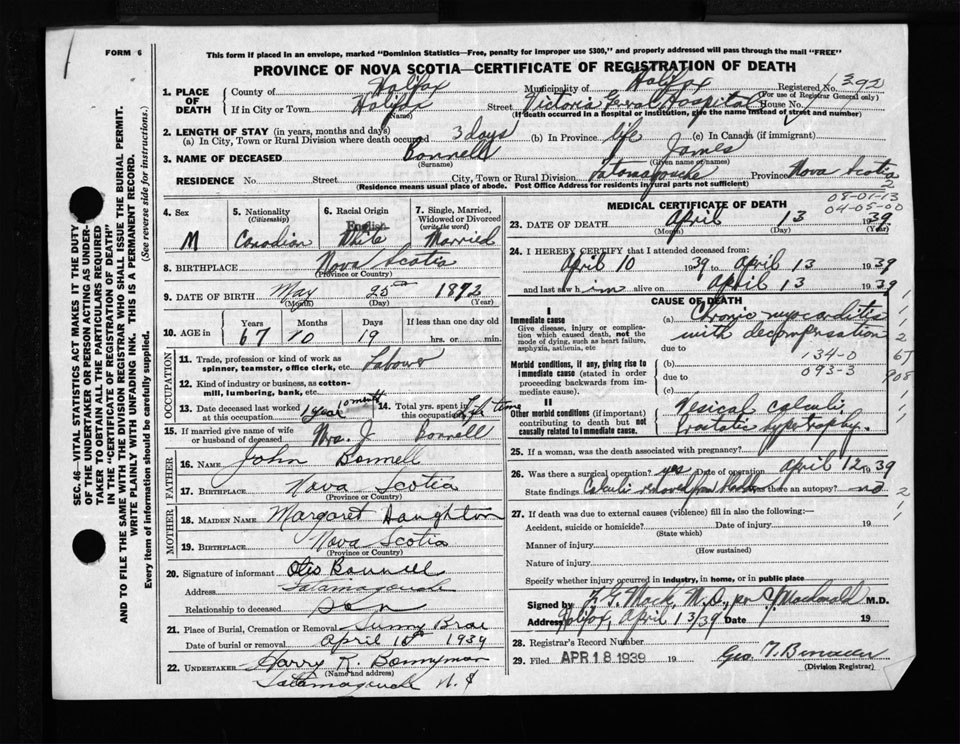 FORM 6
This form if placed in an envelope, marked "Dominion Statistics—Free, penalty for improper use $300," and properly addressed will pass through the mail "FREE"
PROVINCE OF NOVA SCOTIA—CERTIFICATE OF REGISTRATION OF DEATH
SEC. 46—VITAL STATISTICS ACT MAKES IT THE DUTY
OF THE UNDERTAKER OR PERSON ACTING AS UNDER-
TAKER TO OBTAIN ALL THE PARTICULARS REQUIRED
IN THE "CERTIFICATE OF REGISTRATION OF DEATH"
AND TO FILE THE SAME WITH THE DIVISION REGISTRAR WHO SHALL ISSUE THE BURIAL PERMIT.
WRITE PLAINLY WITH UNFADING INK. THIS IS A PERMANENT RECORD.
Every item of information should be carefully supplied. (See reverse side for instructions.)
1. PLACE OF DEATH
County of Halifax Municipality of Halifax Registered No. 1392
(For use of Registrar General only)
If in City or Town Halifax Street Victoria General Hospital House No.
(Name) (If death occurred in a hospital or institution, give the name instead of street and number)
2. LENGTH OF STAY (in years, months and days)
(a) In City, Town or Rural Division where death occurred 3 days (b) In Province life (c) In Canada (if immigrant)
3. NAME OF DECEASED Bonnell James
(Surname) (Given name or names)
RESIDENCE No. Street City, Town or Rural Division Tatamagouche Province Nova Scotia
(Residence means usual place of abode. Post Office Address for residents in rural parts not sufficient)
2
08-01-13
04-05-00
4. Sex M
5. Nationality (Citizenship) Canadian
6. Racial Origin English White
7. Single, Married, Widowed or Divorced (write the word) Married
8. BIRTHPLACE Nova Scotia
(Province or Country)
9. DATE OF BIRTH May 25th 1872
(Month) (Day) (Year)
10. AGE in Years Months Days If less than one day old
67 10 19 hrs. or min.
OCCUPATION
11. Trade, profession or kind of work as spinner, teamster, office clerk, etc. Labour
12. Kind of industry or business, as cotton-mill, lumbering, bank, etc.
13. Date deceased last worked at this occupation 1 year 10 month
14. Total yrs. spent in this occupation Life time
15. If married give name of wife or husband of deceased Mrs. J Bonnell
FATHER
16. NAME John Bonnell
17. BIRTHPLACE Nova Scotia
(Province or Country)
MOTHER
18. MAIDEN NAME Margaret Haughton
19. BIRTHPLACE Nova Scotia
(Province or Country)
20. Signature of informant Otis Bonnell
Address Tatamagouche
Relationship to deceased Son
21. Place of Burial, Cremation or Removal Sunny Brae
Date of burial or removal April 1939
22. UNDERTAKER Harry K. Bonnyman
(Name and address)
Tatamagouche N.S
MEDICAL CERTIFICATE OF DEATH
23. DATE OF DEATH April 13 1939
(Month) (Day) (Year)
24. I HEREBY CERTIFY that I attended deceased from:
April 10 1939 to April 13 1939
and last saw him alive on April 13 1939
CAUSE OF DEATH
I
Immediate cause
Give disease, injury or complication which caused death, not the mode of dying, such as heart failure, asphyxia, asthenia, etc
(a) Chronic myocarditis
with decompensation
due to
Morbid conditions, if any, giving rise to immediate cause (stated in order proceeding backwards from immediate cause).
(b) 134-0
due to 093-3
(c)
II
Other morbid conditions (if important) contributing to death but not causally related to immediate cause.
Vesical calculi
Prostatic hypertrophy.
25. If a woman, was the death associated with pregnancy?
26. Was there a surgical operation? yes Date of operation April 12 1939
State findings Calculi removed from Bladder Was there an autopsy? no
27. If death was due to external causes (violence) fill in also the following:—
Accident, suicide or homicide? Date of injury 19
(State which)
Manner of injury
(How sustained)
Nature of injury
Specify whether injury occurred in industry, in home, or in public place
Signed by F. G. Mack, M.D., per C. J. Macdonald M.D.
Address Halifax, April 13/39 Date 19
28. Registrar's Record Number
29. Filed APR 18 1939 19
(Division Registrar)